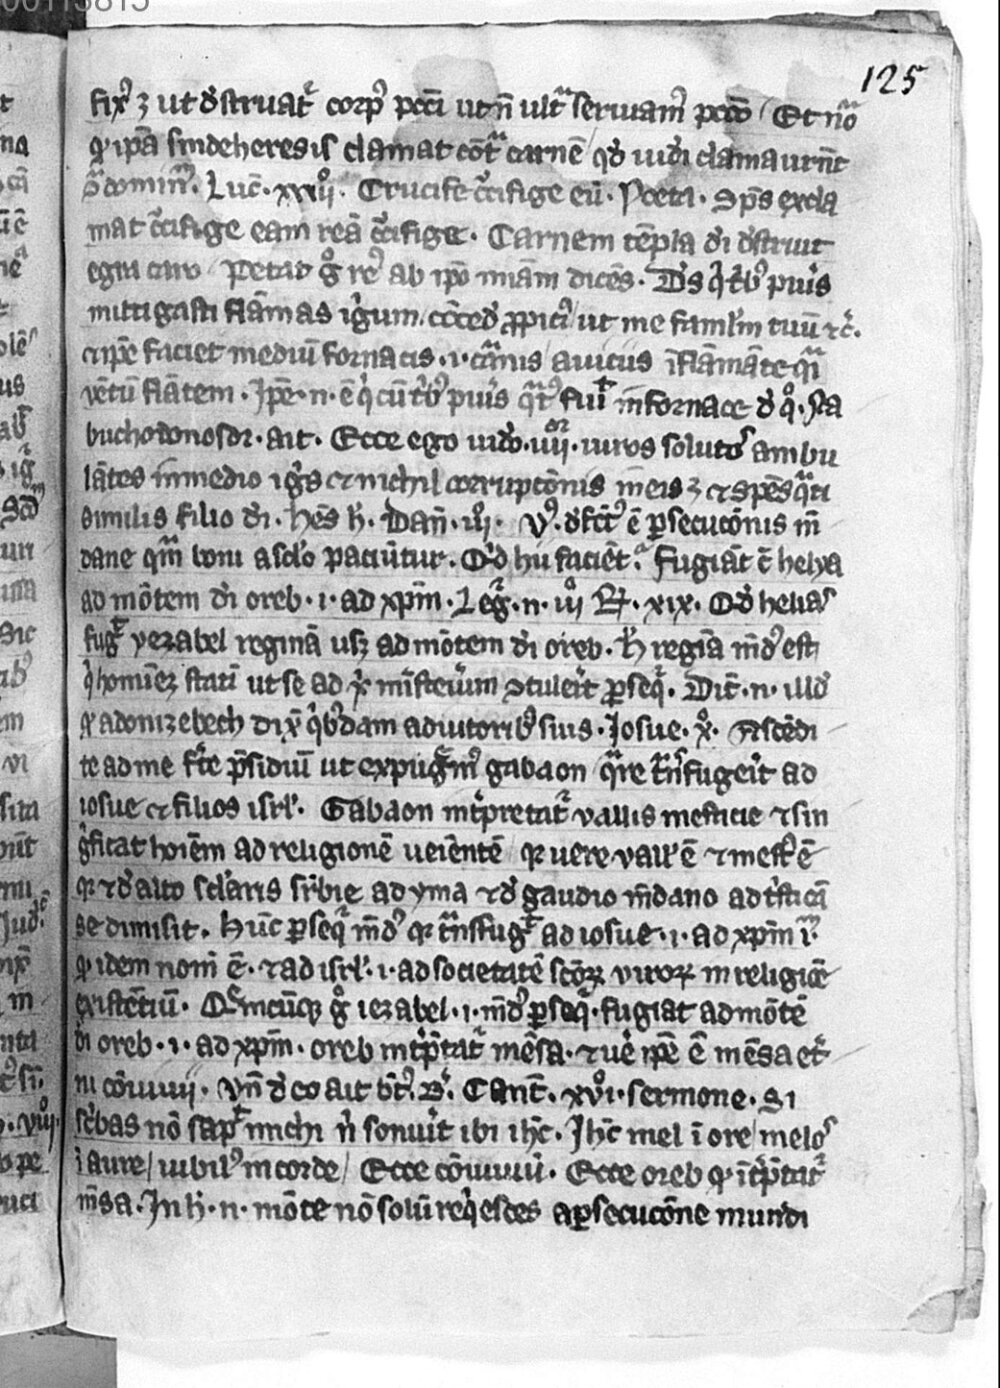 125
fixꝰ ⁊ ut dstruat᷑ corpꝰ pcc̄i ut n̄ ultᷓ seruiamꝰ pccō Et nō
ipā sindeheresis clamat cōtᷓ carnē qd̄ iudi clamauer̄t
ᷓ dominū. Luc̄. xxiiͦ. Crucifige c̄cifige eū. sps excla
mat c̄cifige eam reā c̄cifige. Carnem tēpla di dstruit
egra caro Petat gͦ reꝰ ab ipō miām dicēs. Ds q tbꝰ puis
mitigasti flāmas ignium cōced ꝓpiciꝰ ut me famlm tuū ⁊c̄.
et ipe faciet mediū fornacis .i. carnis auicius īflāmāte qͣ
vētū flātem. Ipe .n. ē q cū tbꝰ puis fuit in fornace d qͦ. Na
buchodonosor. ait. Ecce ego uido .iiii. uiros solutos ambu
lātes in medio igis et nichil corrupcōnis in eis ⁊ et spēs qͣrti
similis filio di. hēs h̄. Dan̄. iii. Vꝰ. dfctꝰ ē ꝑsecucōnis mū
dane qm̄ boni a sclo paciūtur. Qd hii faciēt. Fugiāt c̄ helya
ad mōtem di oreb .i. ad xpm̄. Leg᷑ .n. iii R. xix. Qd helias
fug yezabel reginā usqꝫ ad mōtem di oreb. h regīa mdꝰ est
homīez statī ut se ad x ministerium ꝯtulerit ꝑseq᷑. Dic̄ .n. illd
adonizebech dix qbdam adiutoribꝰ suis. Iosue. xͦ. Ascēdi
te ad me fte p̄sidiū ut expugͫ gabaon qͣre tnsfugerit ad
iosue et filios isrl. Gabaon int̄pretat᷑ vallis mesticie ⁊ sin
gficat hoiēm ad religionē ueiēntē qꝛ uere vall ē ⁊ mest ē
qꝛ ⁊ d alto sclaris srbie ad yma ⁊ d gaudio mdano ad tsticiā
se dimisit. Hūc ꝑseq᷑ mdꝰ qꝛ tnsfug ad iosue .i. ad xpm̄
idem nom̄ ē. ⁊ ad isrl .i. ad societatē scōꝝ viroꝝ in religiōe
existēciū. Quicūqꝫ gͦ iezabel .i. mdꝰ ꝑseq᷑. fugiat ad mōtē
di oreb .i. ad xpm̄. oreb int̄ptat᷑ mēsa. ⁊ ue ipe ē mēsa et
ni cōuiuii. Vn̄ d eo ait bt. B. Cant̄. xviͦ. sermone. Si
scbas nō sap michi n sonuit ibi ihc̄. Ihc̄ mel ī ore / melos
ī aure / iubilꝰ in corde / Ecce cōuiuiū. Ecce oreb ītptat᷑
mēsa. In h .n. mōte nō solū reqesces a ꝑsecucōne mundi